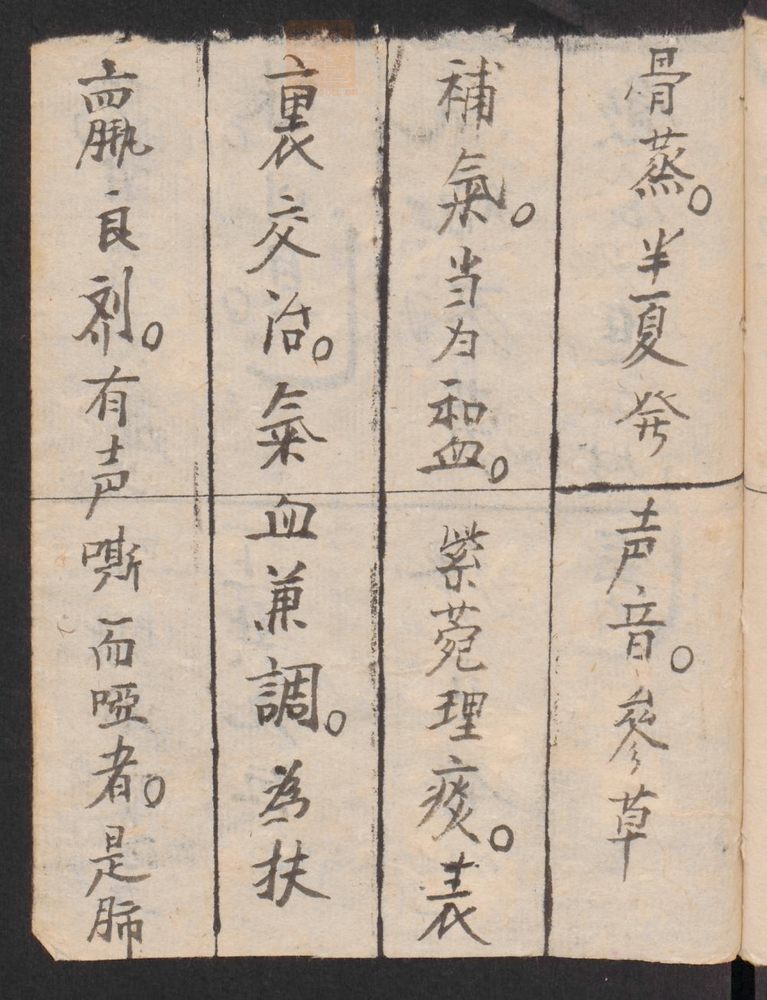 骨蒸。半夏発声音。参草
補氣。当为和血。紫菀理痰。表
裏交治。氣血兼調。為扶
羸良剂。有声嘶而啞者。是肺